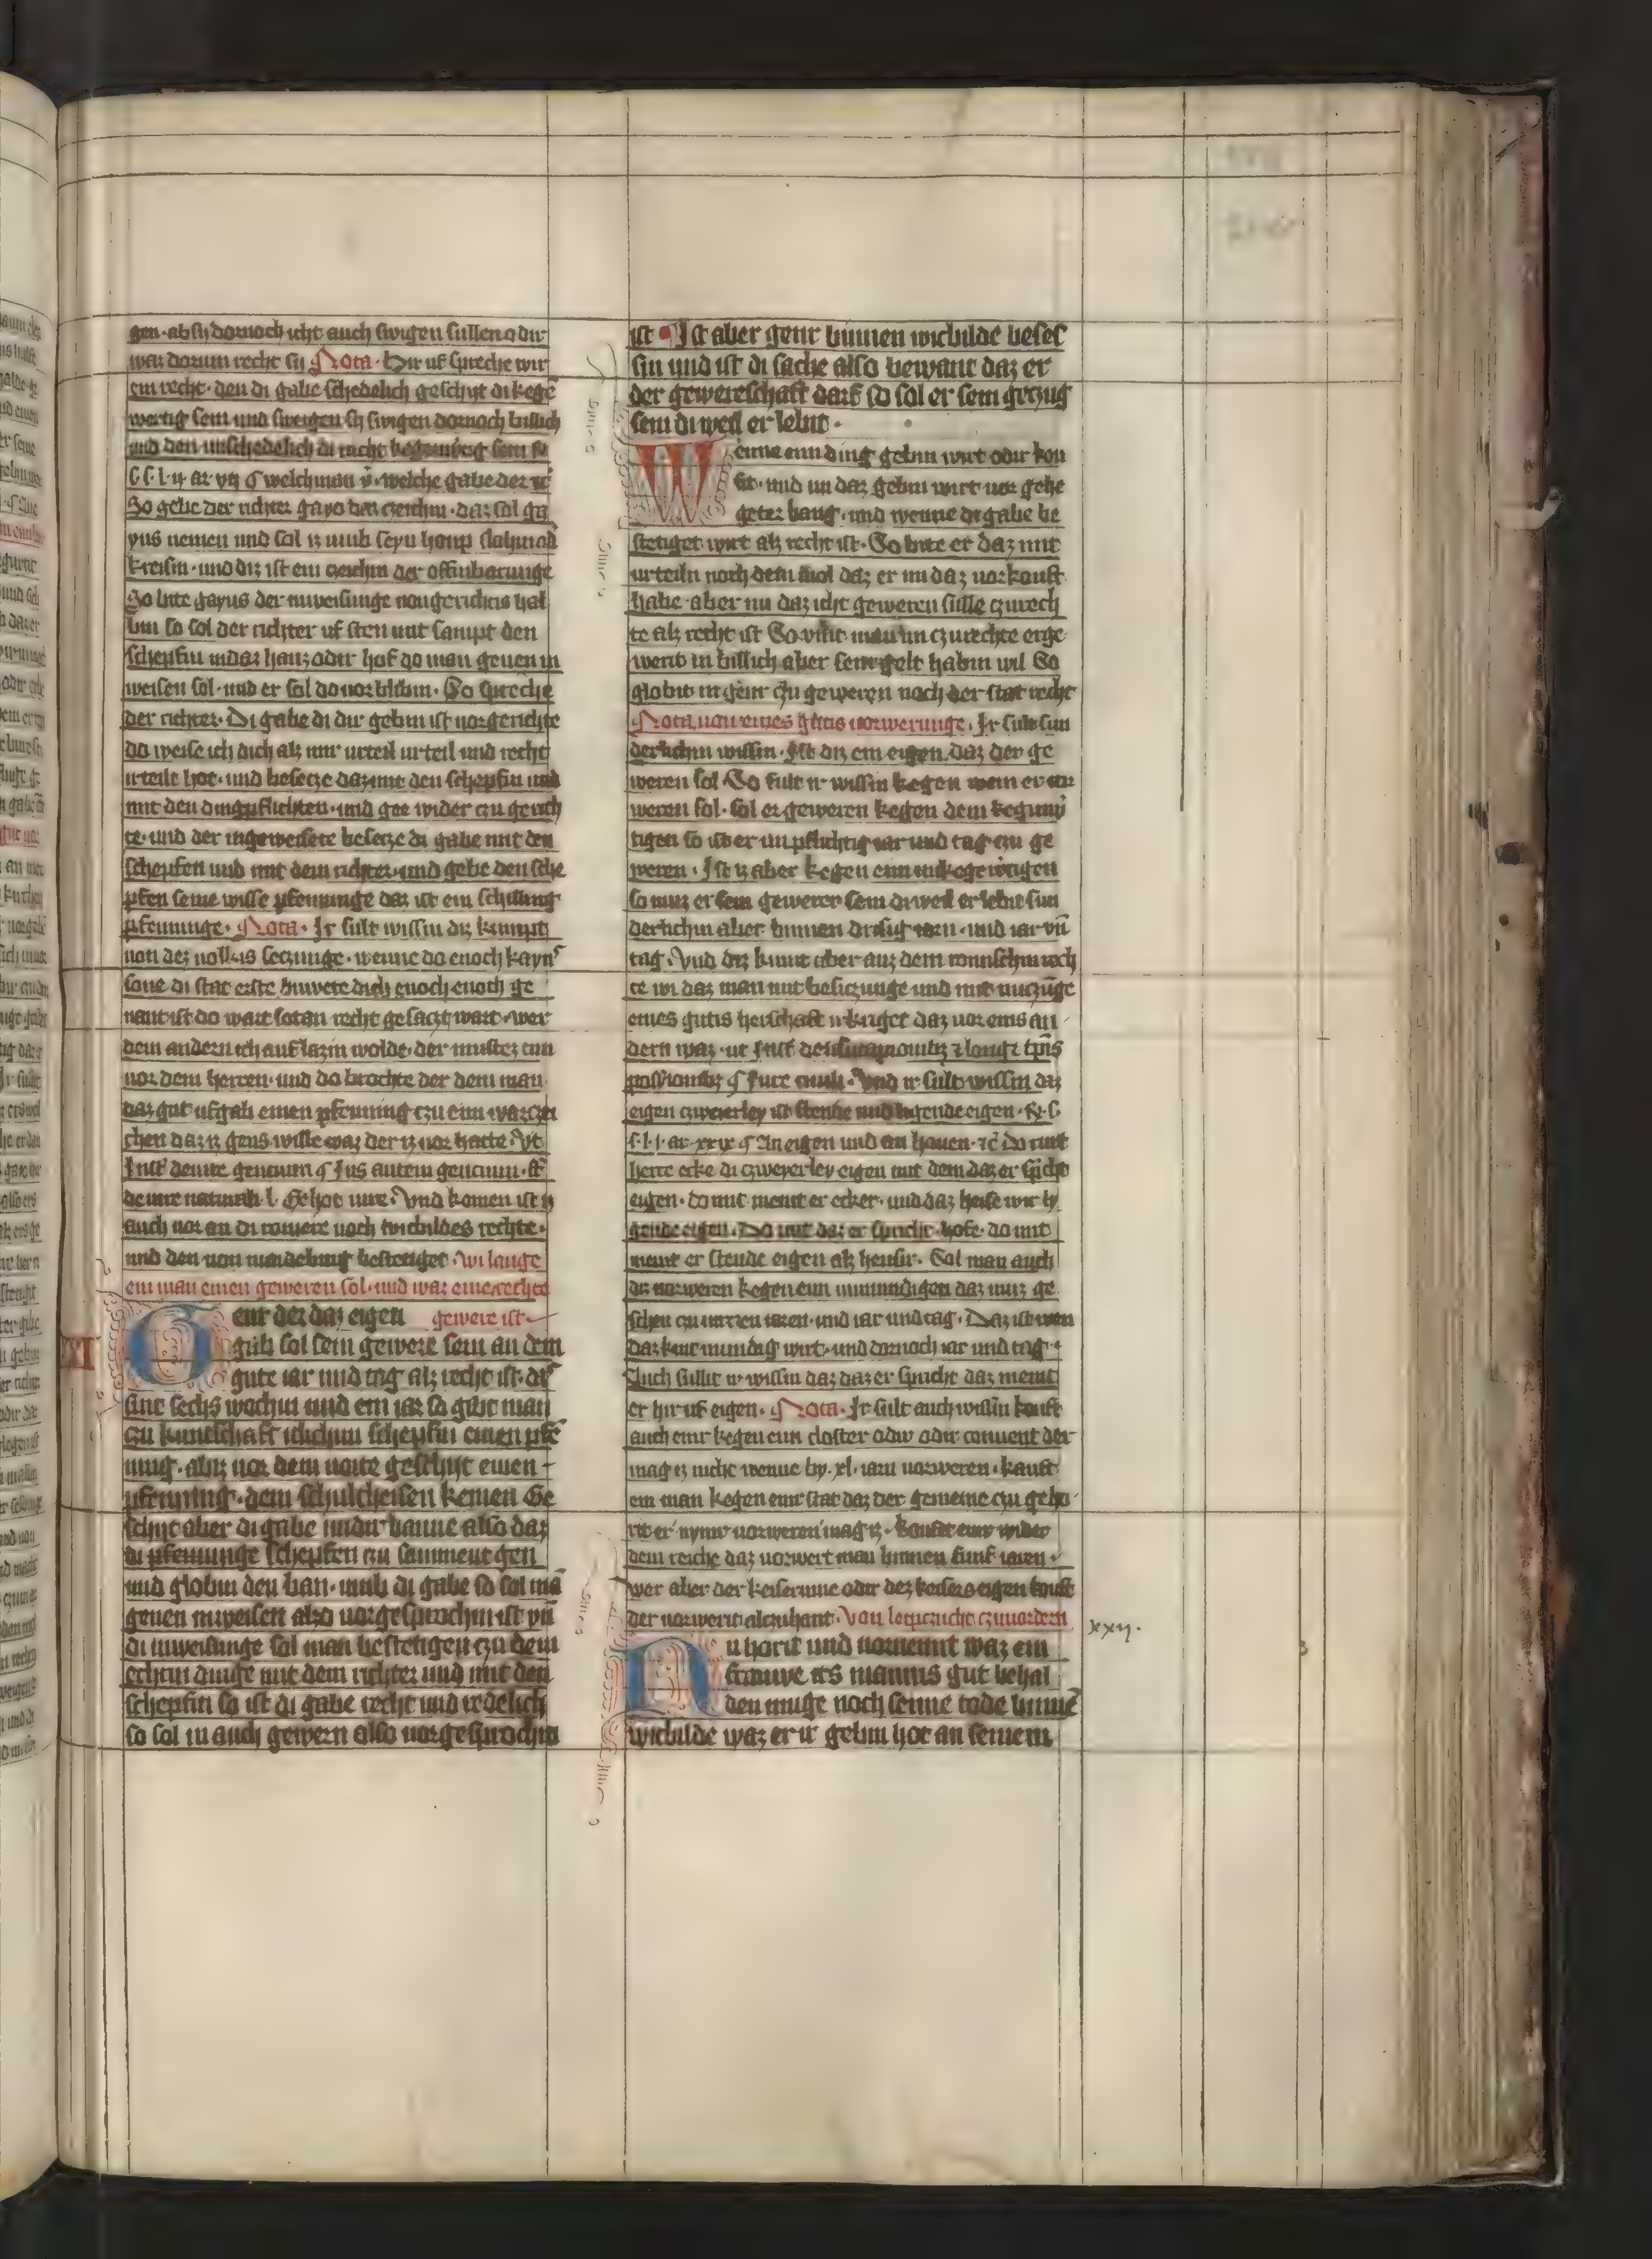 gen · ab sy dornoch icht auch swigen sullen odir
waz dorum recht sy Nota · Hir uf spreche wir
ein recht · den di gabe schedelich geschyt di kegē
wertig sein und sweigen sy swigen dornoch billich
und den unschedelich di nicht
welchman welche gabe der
So gebe der richter gayo den czeichin · daz sol ga
yus nemen und sol iz umb seyn houp slahin ad
kreisin · und diz ist ein czeichin der offinbarunge
So bite gayus der inweisunge von gerichtis hal
bin so sol der richter uf sten mit sampt den
schepfin in daz hauz odir hof do man genen in
weisen sol · und er sol do vor blibin · So spreche
der richter · Di gabe di dir gebin ist vor gerichte
do weise ich dich alz mir urteil urteil und recht
irteilt hot · und besetze daz mit den schepfin und
mit den dingpflichten · und gee wider czu gerich
te · und der ingeweisete besetze di gabe mit den
schepfen und mit dem richter · und gebe den sche
pfen seine wisse pfenninge daz ist ein schilling
pfenninge · Nota · Ir sult wissin diz kumpt
von dez volkis seczunge · wenne do enoch kayns
sone di stat erste buwete dich enoch enoch ge
nant ist do wart sotan recht gesaczt wart · wer
dem andern ich auf lazin wolde · der mustez tun
vor dem herren · und do brochte der dem man
daz gut uf gab einen pfenning czu eim warczei
chen daz iz gens wille waz der iz vor hatte · Vt
Inst' de iure gencium § Jus autem gencium · ff
de iure naturali · l · Ex hoc iure · Vnd komen ist iz
auch vor an di romere noch wicbildes rechte ·
und den von maydeburg bestetiget · wi lange
ein man einen geweren sol · und waz eine rechte
enr der daz eigen gewere ist
gab sol sein gewere sein an dem
gute iar und tag alz recht ist · dz
sint sechs wochin und ein iar so gibt man
czu kuntschaft iclichim schepfin einen pfē
ning · abiz vor dem voite geschyt einen
pfenning · dem schultheisen keinen Ge
schyt aber di gabe undir banne also daz
di pfenninge schepfen czu samment gen
und globin den ban · umb di gabe so sol mā
genen inweisen also vorgesprochin ist vn̄
di inweisunge sol man bestetigen czu dem
echtin dinge mit dem richter und mit den
schepfin so ist di gabe recht und redelich
so sol in auch gewern also vorgesprochin
ist · Ist aber genr binnen wicbilde beses
sin und ist di sache also bewant daz er
der gewereschaft darf so sol er sein geczug
sein di weil er lebit ·
Wenne eim ding gebin wirt odir kou
fit · und im daz gebin wirt vor gehe
geter bang · und wenne di gabe be
stetiget wirt alz recht ist · So bitt er daz mit
urteiln noch dem mol daz er im daz vorkouft
habe · aber nu daz icht geweren sulle czurech
te alz recht ist So vint man im czurechte erge
werit in billich aber sein gelt habin wil So
globit in genr czu geweren noch der stat recht
Nota von eines gutis vorwerunge · Ir sult sun
derlichin wissin · Ist diz ein eigen daz der ge
weren sol So sult ir wissin kegen wem er vor
weren sol · sol er geweren kegen dem keginw
tigen so ist er im pflichtig iar und tag czu ge
weren · Ist iz aber kegen eim unkegewtigen
so muz er sein gewerer sein di weil er lebit sun
derlichin aber binnen drisig iarn · und iar vn̄
tag · Vnd diz kumt aber auz dem romischin rech
te wi daz man mit besiczunge und mit nuczūge
eines gutis herschaft irkriget daz vor eins an
dern waz · ut Inst' de usucapionibz et longi tp̄is
possionibz § fure Vnd ir sult wissin daz
eigen czweierley ist stende und ligende eigen ·
ar · xxix § An eigen und an houen · do mit
herre ecke di czweyerley eigen mit dem daz er spricht
eigen · do mit meint er ecker · und daz heise wir ly
gende eigen · Do mit daz er spricht · hofe · do mit
meint er stende eigen alz heusir · Sol man auch
diz vorweren kegen eim unmundigen daz muz ge
schen czu untzen iaren · und iar und tag · Daz ist wen
daz kint mundig wirt · und dornoch iar und tag ·
Auch sullit ir wissin daz daz er spricht daz meint
er hir uf eigen · Nota · Ir sult auch wissin kouft
auch einr kegen eim closter odir odir conuent der
mag iz nicht wenne by · xl · iarn vorweren · kauft
ein man kegen einr stat daz der gemeine czu geho
rit er nymr vorweren mag iz · koufet einr wider
dem reiche daz vorwert man binnen funf iaren ·
wer aber der keiserinne odir dez keisers eigen kouft
der vorwerit alczuhant · Von leipczucht czuvordern
xxij.
Nu horit und vornemit waz ein
frauwe irs mannis gut behal
den muge noch seime tode binnē
wicbilde waz er ir gebin hot an seinem